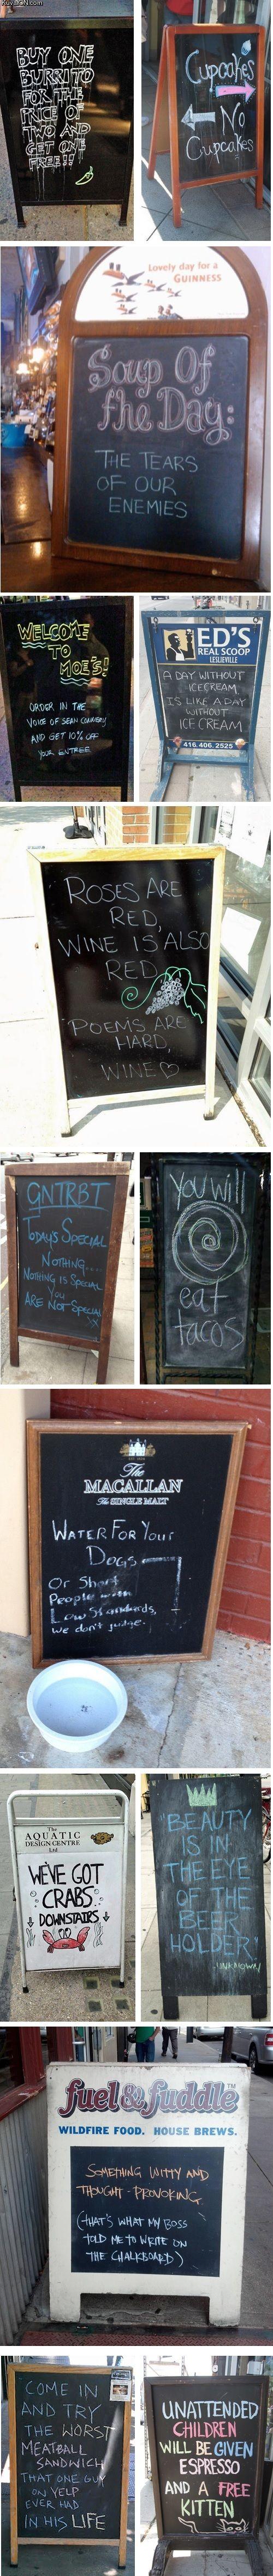 KuvaTON.com
BUY ONE
BURRITO
FOR THE
PRICE OF
TWO AND
GET ONE
FREE!!
Cupcakes
No
Cupcakes
Lovely day for a
GUINNESS
Soup Of
the Day:
THE TEARS
OF OUR
ENEMIES
WELCOME
TO
MOE'S!
ORDER IN THE
VOICE OF SEAN CONNERY
AND GET 10% OFF
YOUR ENTREE
ED'S
REAL SCOOP
LESLIEVILLE
A DAY WITHOUT
ICECREAM
IS LIKE A DAY
WITHOUT
ICE CREAM
416.406.2525
ROSES ARE
RED,
WINE IS ALSO
RED
POEMS ARE
HARD,
WINE
GNTRBT
Today's Special
NOTHING....
NOTHING IS SPECIAL
YOU
ARE NOT SPECIAL
XX
YOU Will
eat
tacos
The
MACALLAN
The SINGLE MALT
WATER FOR YOUR
DOGS
Or Short
People with
Low Standards,
we don't judge.
The
AQUATIC
DESIGN CENTRE
Ltd
WE'VE GOT
CRABS
DOWNSTAIRS
"BEAUTY
IS IN
THE EYE
OF THE
BEER
HOLDER"
-UNKNOWN
fuel & fuddle™
WILDFIRE FOOD. HOUSE BREWS.
SOMETHING WITTY AND
THOUGHT-PROVOKING
(THAT'S WHAT MY BOSS
TOLD ME TO WRITE ON
THE CHALKBOARD)
COME IN
AND TRY
THE WORST
MEATBALL
SANDWICH
THAT ONE GUY
ON YELP
EVER HAD
IN HIS LIFE
UNATTENDED
CHILDREN
WILL BE GIVEN
ESPRESSO
AND A FREE
KITTEN